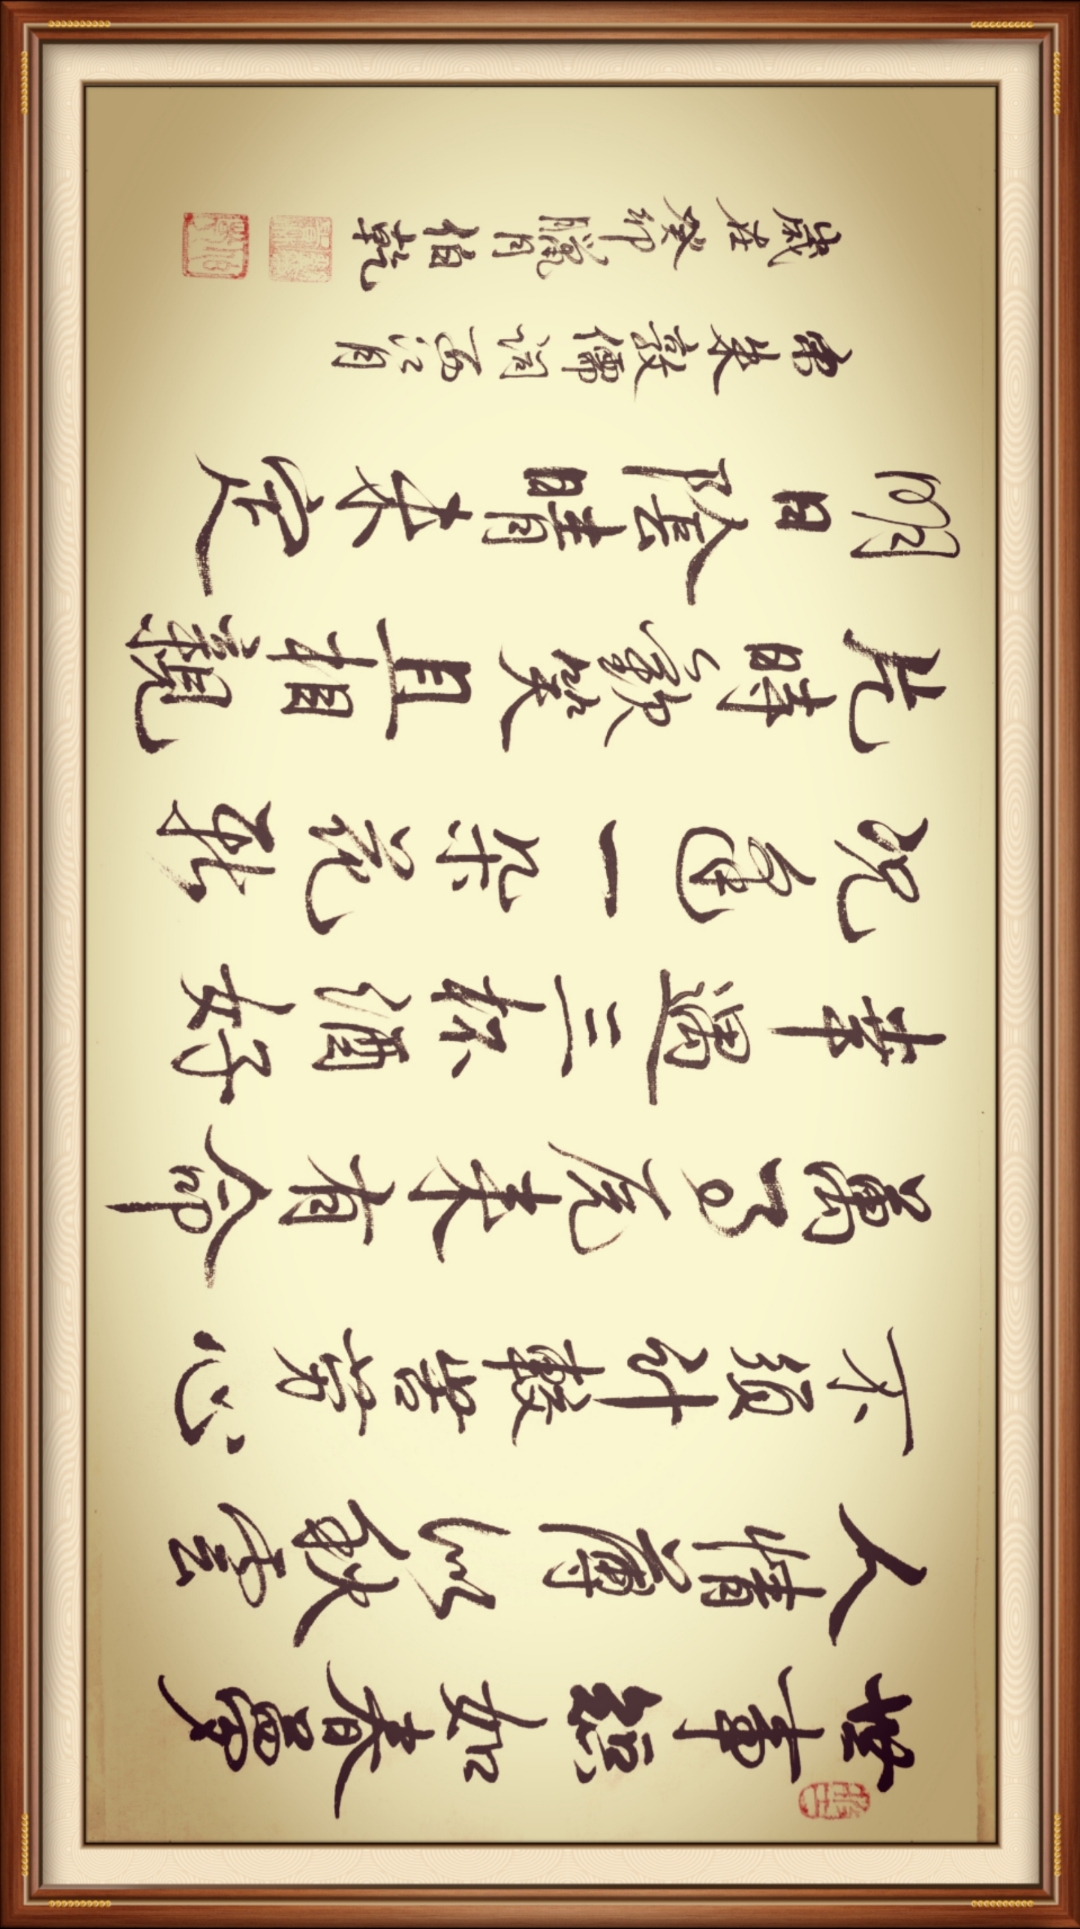 世事總如春夢
人情薄似秋雲
不須計較苦勞心
萬事原來有命
幸遇三杯酒好
況逢一朵花新
片時歡笑且相親
明日陰晴未定
宋朱敦儒詞西江月
歲在癸卯臘月柏乾